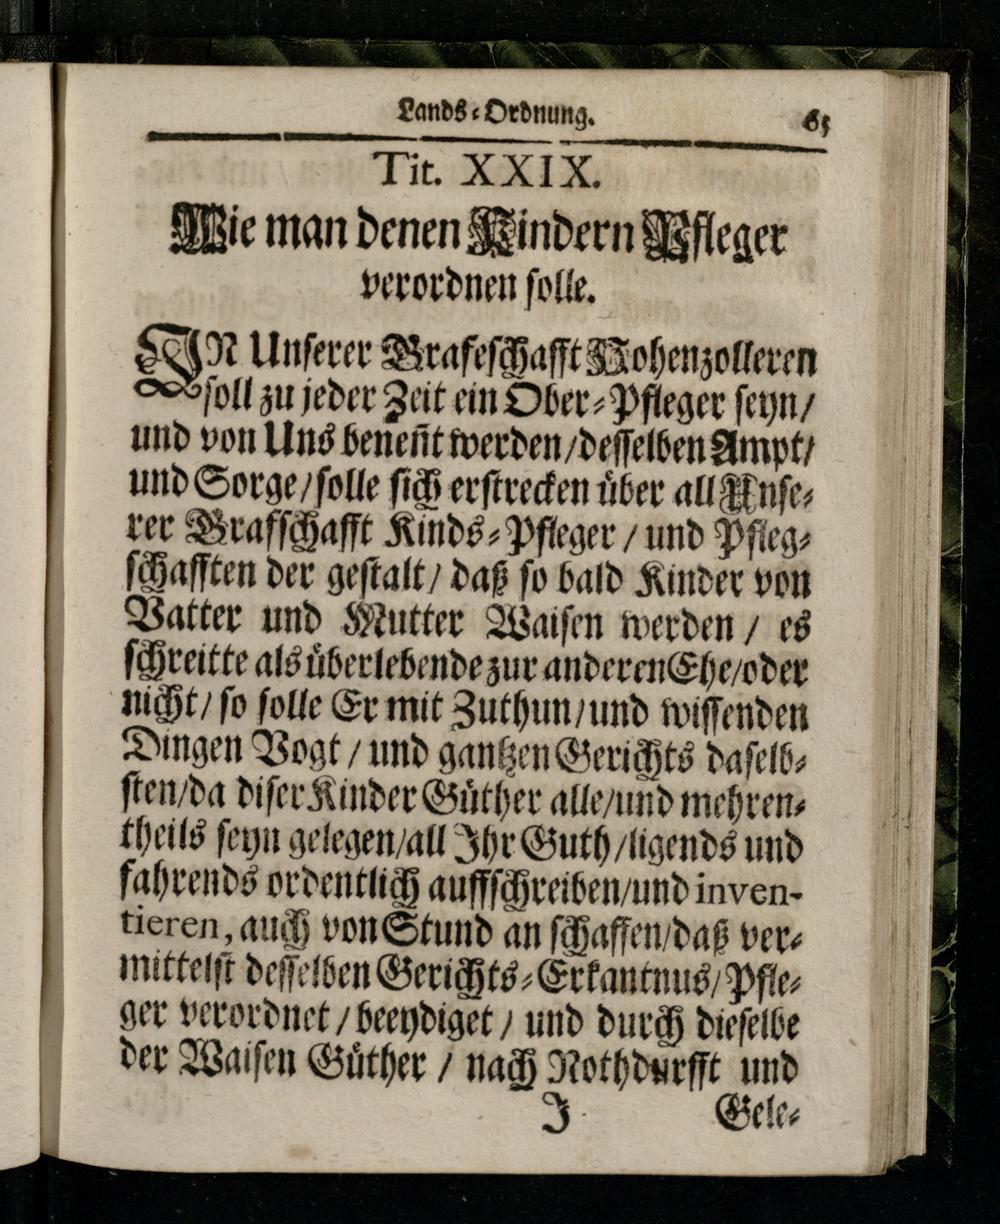 Lands-Ordnung. 65
Tit. XXIX.
Wie man denen Kindern Pfleger
verordnen solle.
IN Unserer Grafeschafft Hohenzolleren
soll zu jeder Zeit ein Ober-Pfleger seyn/
und von Uns beneñt werden/desselben Ampt/
und Sorge/solle sich erstrecken über all Unse-
rer Grafschafft Kinds-Pfleger / und Pfleg-
schafften der gestalt/ daß so bald Kinder von
Vatter und Mutter Waisen werden / es
schreitte als überlebende zur anderen Ehe/oder
nicht/ so solle Er mit Zuthun/und wissenden
Dingen Vogt / und gantzen Gerichts daselb-
sten/da diser Kinder Güther alle/und mehren-
theils seyn gelegen/all Ihr Guth/ligends und
fahrends ordentlich auffschreiben/und inven-
tieren, auch von Stund an schaffen/daß ver-
mittelst desselben Gerichts-Erkantnus/Pfle-
ger verordnet / beeydiget / und durch dieselbe
der Waisen Güther / nach Nothdurfft und
I Gele-